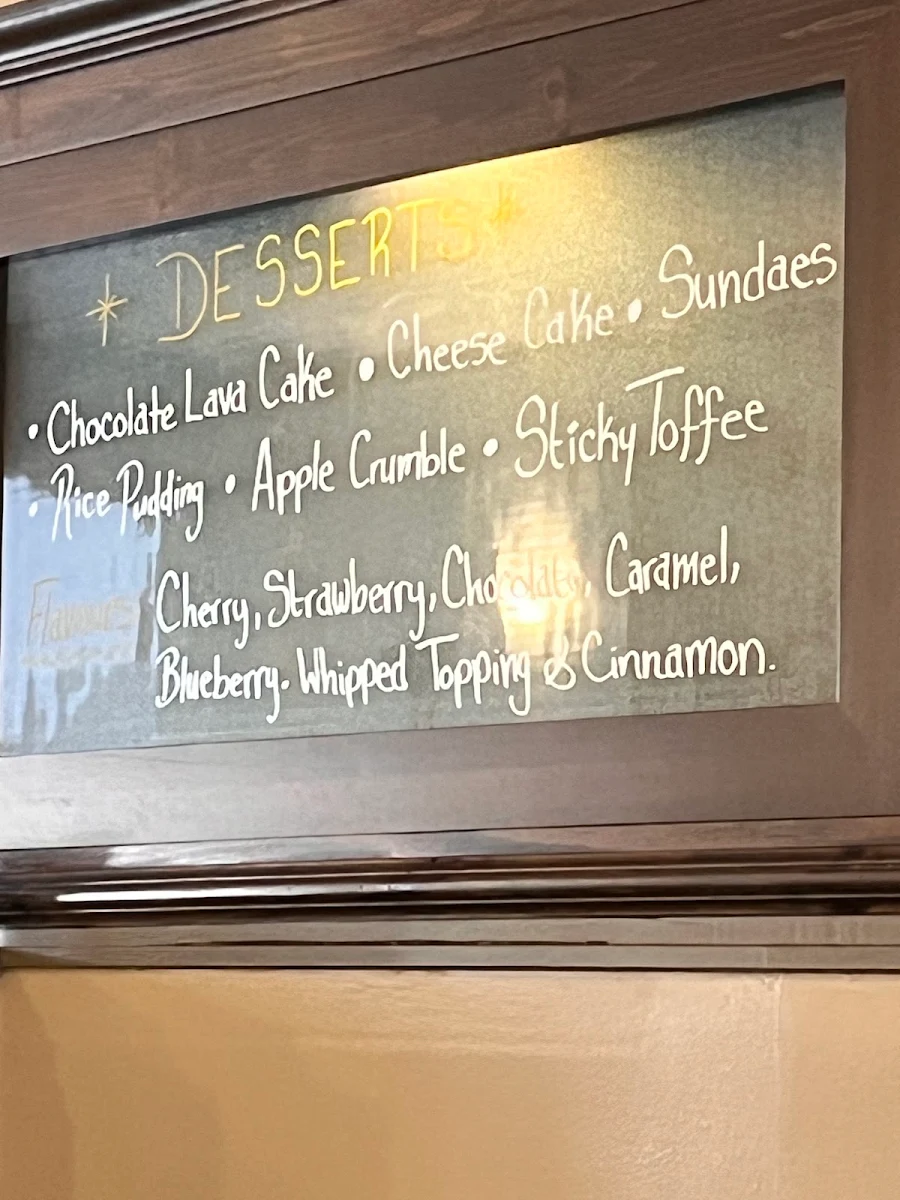 * DESSERTS *
• Chocolate Lava Cake • Cheese Cake • Sundaes
• Rice Pudding • Apple Crumble • Sticky Toffee
Flavours Cherry, Strawberry, Chocolate, Caramel,
Blueberry. Whipped Topping & Cinnamon.